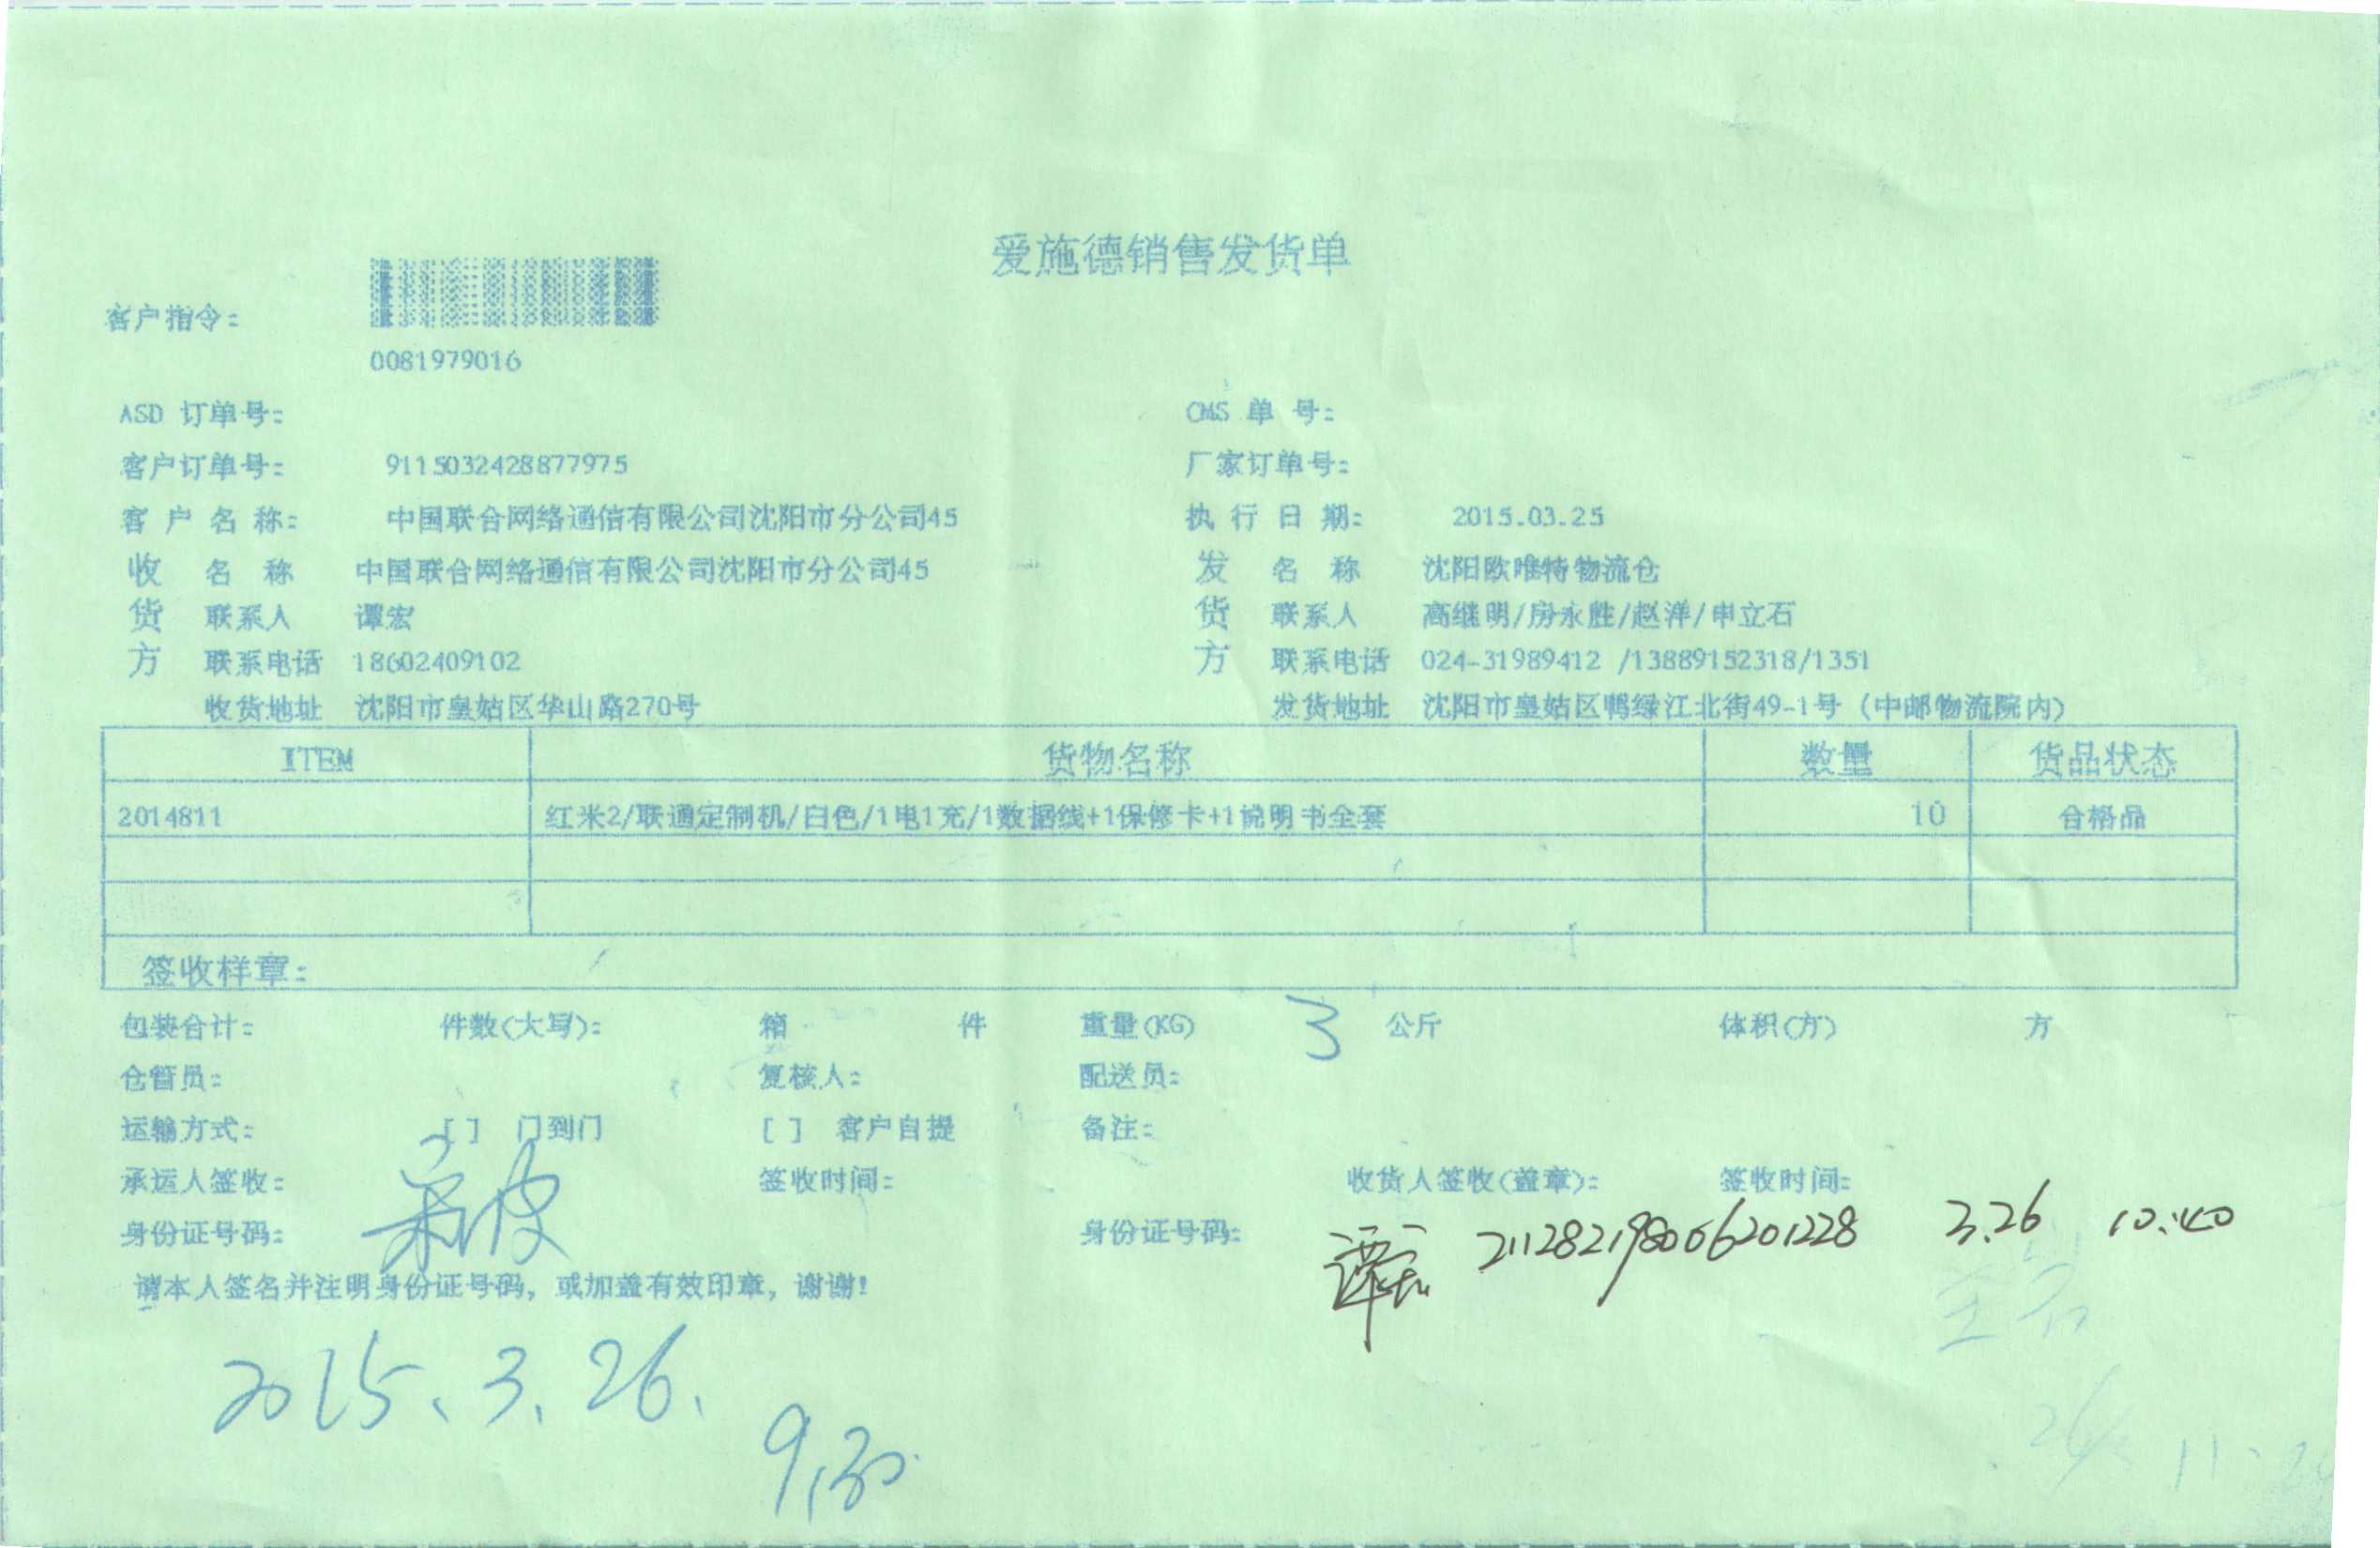 爱施德销售发货单
客户指令:
0081979016
ASD 订单号: CMS 单 号:
客户订单号: 9115032428877975 厂家订单号:
客 户 名 称: 中国联合网络通信有限公司沈阳市分公司45 执 行 日 期: 2015.03.25
收 名 称 中国联合网络通信有限公司沈阳市分公司45 发 名 称 沈阳欧唯特物流仓
货 联系人 谭宏 货 联系人 高继明/房永胜/赵洋/申立石
方 联系电话 18602409102 方 联系电话 024-31989412 /13889152318/1351
收货地址 沈阳市皇姑区华山路270号 发货地址 沈阳市皇姑区鸭绿江北街49-1号 (中邮物流院内)
ITEM 货物名称 数量 货品状态
2014811 红米2/联通定制机/白色/1电1充/1数据线+1保修卡+1说明书全套 10 合格品
签收样章:
包装合计: 件数(大写): 箱 件 重量(KG) 3 公斤 体积(方) 方
仓管员: 复核人: 配送员:
运输方式: [ ] 门到门 [ ] 客户自提 备注:
承运人签收: 签收时间: 收货人签收(盖章): 签收时间:
身份证号码: 身份证号码: 谭宏 211282198006201228 3.26 10:40
请本人签名并注明身份证号码, 或加盖有效印章, 谢谢!
2015.3.26.
9:30